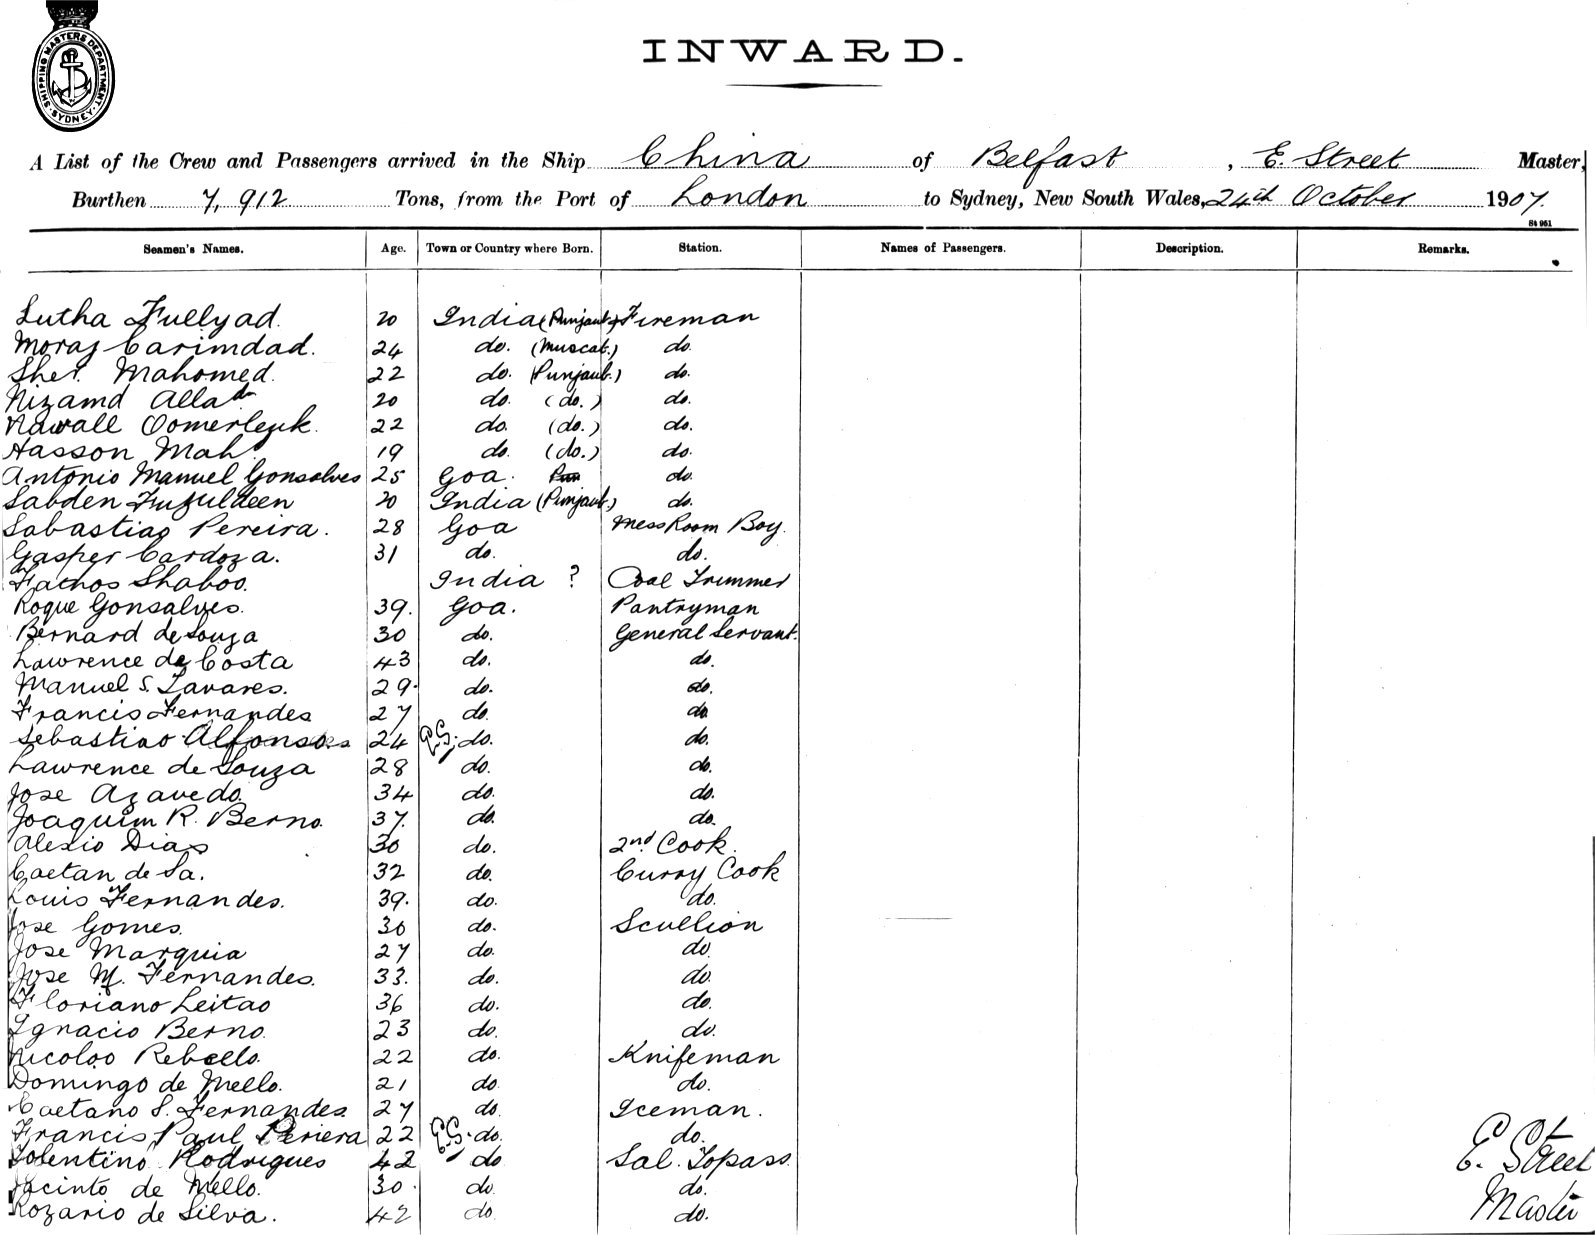 SHIPPING MASTERS DEPARTMENT. SYDNEY.
INWARD.
A List of the Crew and Passengers arrived in the Ship China of Belfast, E. Street Master,
Burthen 7,912 Tons, from the Port of London to Sydney, New South Wales, 24th October 1907.
St 951
Seamen's Names. Age. Town or Country where Born. Station. Names of Passengers. Description. Remarks.
Lutha Fullyad. 20 India (Punjaub) Fireman
Moraj Carimdad. 24 do. (Muscat.) do.
Sher. Mahomed. 22 do. (Punjaub.) do.
Nizamd Allad 20 do. (do.) do.
Nawall Oomer 22 do. (do.) do.
Hasson Mah 19 do. (do.) do.
Antonio Manuel Gonsalves 25 Goa. do.
Sabden 20 India (Punjaub.) do.
Sabastiao Pereira. 28 Goa Mess Room Boy.
Gasper Cardoza. 31 do. do.
Fathos Shaboo. India ? Coal Trimmer
Roque Gonsalves. 39. Goa. Pantryman
Bernard de Souza 30 do. General Servant.
Lawrence da Costa 43 do. do.
Manuel S. Tavares. 29. do. do.
Francis Fernandes 27 do. do.
Sebastiao Alfonso 24 E.S. do. do.
Lawrence de Souza 28 do. do.
Jose Azavedo. 34 do. do.
Joaquim R. Berno. 37. do. do.
Alexio Dias 30 do. 2nd Cook.
Caetan de Sa. 32 do. Curry Cook
Louis Fernandes. 39. do. do.
Jose Gomes. 30 do. Scullion
Jose Marquia 27 do. do.
Jose M. Fernandes. 33. do. do.
Floriano Leitao 36 do. do.
Ignacio Berno. 23 do. do.
Nicoloo Rebello. 22 do. Knifeman
Domingo de Mello. 21 do. do.
Caetano S. Fernandes. 27 do. Iceman.
Francis Paul Periera 22 E.S. do. do.
Tolentino Rodrigues 42 do Sal. Topass.
Jacinto de Mello. 30. do. do.
Rozario de Silva. 42 do. do.
E. Street
Master